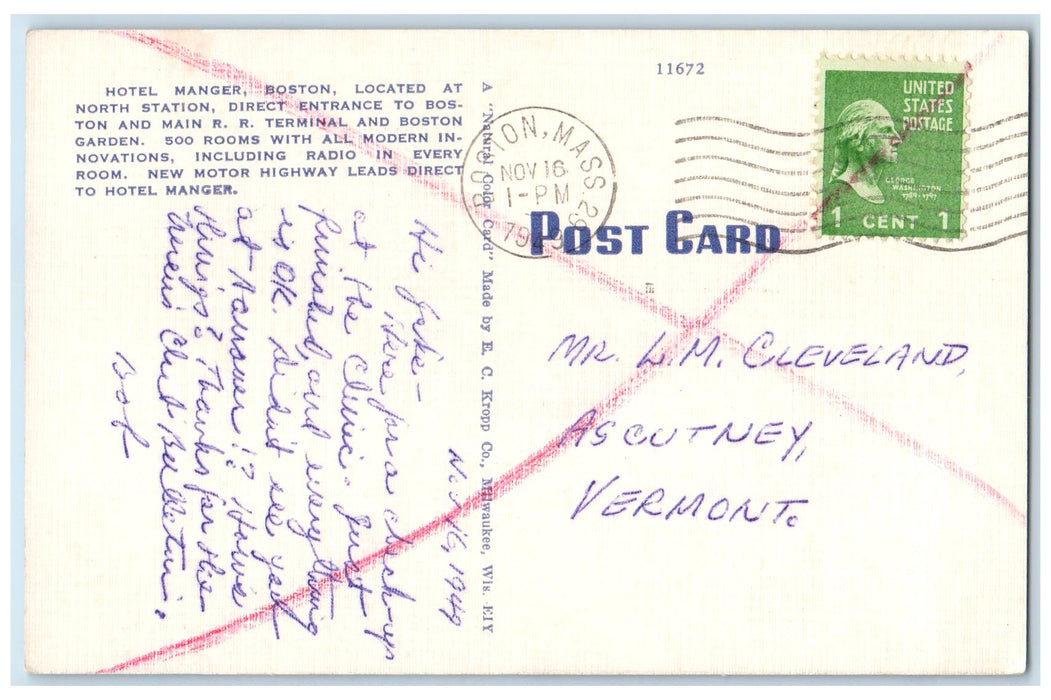 HOTEL MANGER, BOSTON, LOCATED AT
NORTH STATION, DIRECT ENTRANCE TO BOS-
TON AND MAIN R. R. TERMINAL AND BOSTON
GARDEN. 500 ROOMS WITH ALL MODERN IN-
NOVATIONS, INCLUDING RADIO IN EVERY
ROOM. NEW MOTOR HIGHWAY LEADS DIRECT
TO HOTEL MANGER.
Nov. 16, 1949
Hi Jake -
Here for a check-up
at the Clinic. Just
finished, and everything
is OK. Didn't see you
at Hanover!? How's
things? Thanks for the
Club Bulletin.
Bob
A "Natural Color Card" Made by E. C. Kropp Co., Milwaukee, Wis. EIY
11672
BOSTON, MASS.
NOV 16
1-PM
POST CARD
UNITED
STATES
POSTAGE
GEORGE
WASHINGTON
1789-1797
1 CENT 1
MR. L.M. CLEVELAND,
ASCUTNEY,
VERMONT.